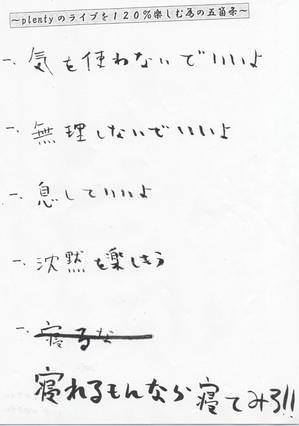 ～plentyのライブを120％楽しむ為の五箇条～
一、気を使わないでいいよ
一、無理しないでいいよ
一、息していいよ
一、沈黙を楽しもう
一、寝るな
寝れるもんなら寝てみろ!!